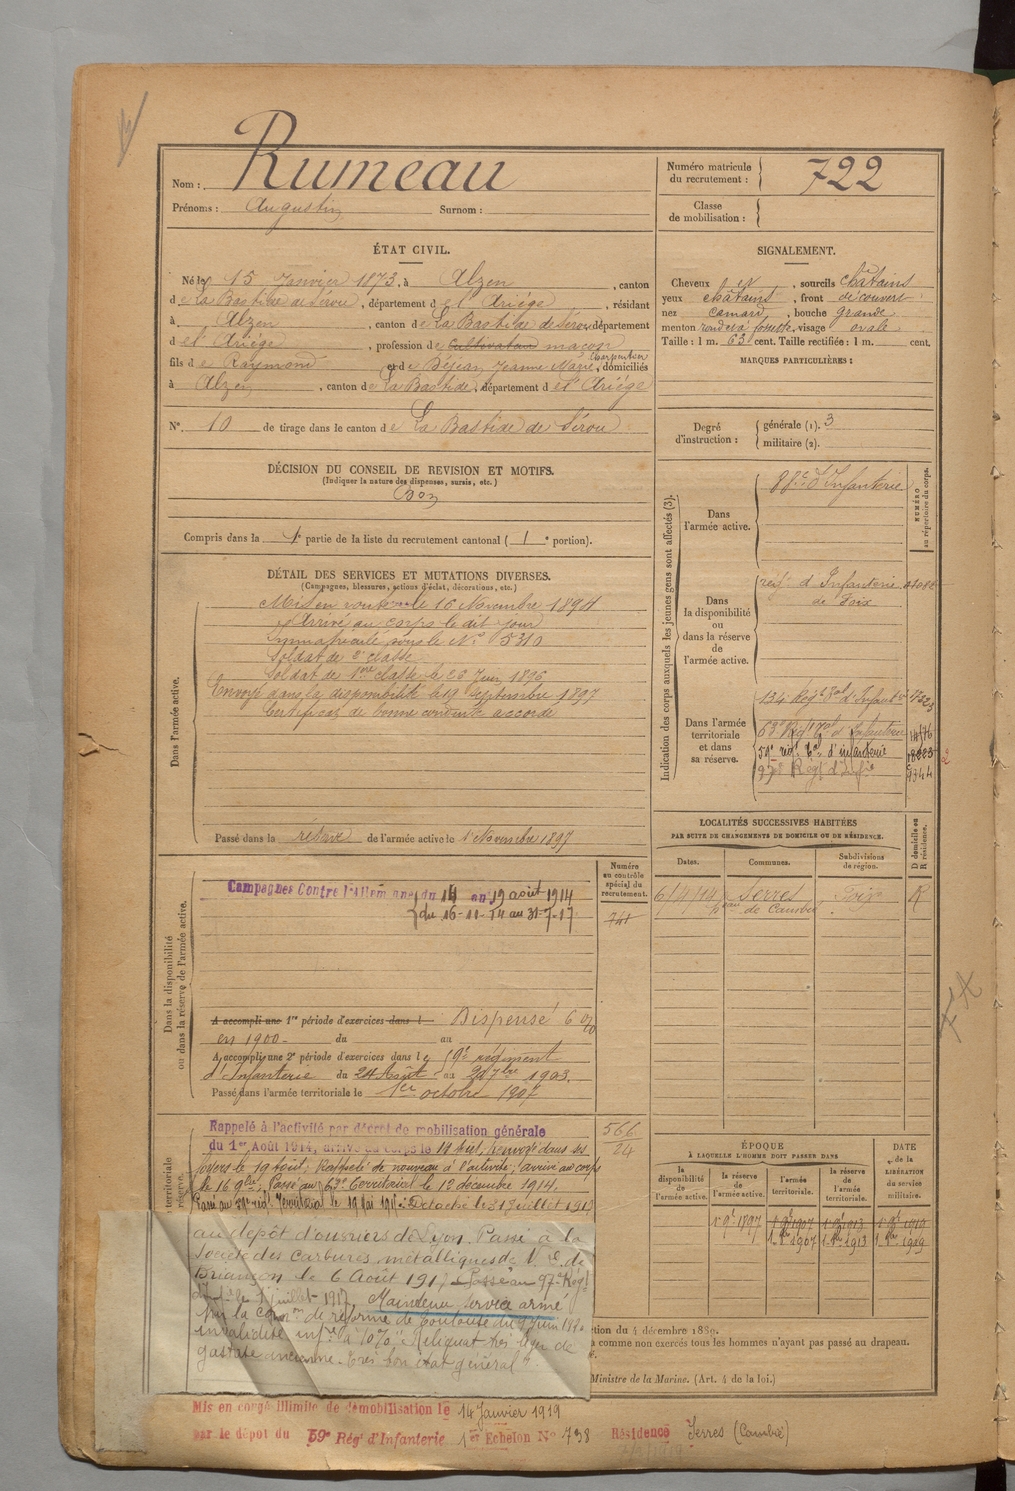 Nom : Rumeau
Prénoms : Augustin Surnom :
Numéro matricule du recrutement : 722
Classe de mobilisation :
ÉTAT CIVIL.
Né le 15 Janvier 1873, à Alzen, canton
de La Bastide de Sérou, département de l'Ariège, résidant
à Alzen, canton de La Bastide de Sérou, département
de l'Ariège, profession de Cultivateur maçon
Charpentier
fils de Raymond et de Béjean Jeanne Marie, domiciliés
à Alzen, canton de La Bastide, département de l'Ariège
N° 10 de tirage dans le canton de La Bastide de Sérou
SIGNALEMENT.
Cheveux et, sourcils châtains
yeux châtains, front découvert
nez camard, bouche grande
menton rond à fossette, visage ovale
Taille : 1 m. 63 cent. Taille rectifiée : 1 m. cent.
MARQUES PARTICULIÈRES :
Degré d'instruction : générale (1). 3
militaire (2).
DÉCISION DU CONSEIL DE REVISION ET MOTIFS.
(Indiquer la nature des dispenses, sursis, etc.)
Bon
Compris dans la 1e partie de la liste du recrutement cantonal (1e portion).
DÉTAIL DES SERVICES ET MUTATIONS DIVERSES.
(Campagnes, blessures, actions d'éclat, décorations, etc.)
Dans l'armée active.
Mis en route le 16 Novembre 1894
Arrivé au corps le dit jour
Immatriculé sous le N° 5310
Soldat de 2e classe
Soldat de 1ère classe le 26 Juin 1896
Envoyé dans la disponibilité le 19 Septembre 1897
Certificat de bonne conduite accordé
Passé dans la réserve de l'armée active le 1er Novembre 1897
Indication des corps auxquels les jeunes gens sont affectés (3).
NUMÉRO au répertoire du corps.
Dans l'armée active.
88e d'Infanterie
Dans la disponibilité ou dans la réserve de l'armée active.
régt d'Infanterie
de Foix
Dans l'armée territoriale et dans sa réserve.
134 Régt Tal d'Infanterie
63e Régt Tal d'Infanterie
59e régt Tal d'infanterie
97e Régt d'Infie 9344
LOCALITÉS SUCCESSIVES HABITÉES
PAR SUITE DE CHANGEMENTS DE DOMICILE OU DE RÉSIDENCE.
Dates. Communes. Subdivisions de région. D domicile ou R résidence.
6/4/14 Serres Foix R
Dans la disponibilité ou dans la réserve de l'armée active.
Numéro au contrôle spécial du recrutement.
741
Campagnes Contre l'Allemagne du 14 au 19 août 1914
du 16-11-14 au 31-7-17
A accompli une 1re période d'exercices dans l Dispensé 6 0/00
en 1900 du au
A accompli une 2e période d'exercices dans le 59e régiment
d'Infanterie du 24 Août au 20 7bre 1903.
Passé dans l'armée territoriale le 1er octobre 1907
566
24
Rappelé à l'activité par décret de mobilisation générale
du 1er Août 1914, arrivé au corps le 14 août, renvoyé dans ses
foyers le 19 août, Rappelé de nouveau à l'activité, arrivé au corps
le 16 9bre. Passé au 63e Territorial le 12 décembre 1914.
Passé au 59e régt Territorial le 19 Mai 1915. Détaché le 31 juillet 1917
au dépôt d'ouvriers de Lyon. Passé à la
Société des Carbures métalliques de
Briançon le 6 Août 1917. Passé au 97e Régt
d'Ie le 1er juillet 1917 Maintenu service armé
par la comon de réforme de Toulouse du
invalidité infre à 10% "Reliquat très léger de
gastrite ancienne. Très bon état général"
ÉPOQUE
À LAQUELLE L'HOMME DOIT PASSER DANS
la disponibilité de l'armée active. la réserve de l'armée active. l'armée territoriale. la réserve de l'armée territoriale.
DATE de la LIBÉRATION du service militaire.
1er 9e 1897 1er 9e 1907 1er 9e 1913 1er 9e 1919
1er 8e 1907 1er 8e 1913 1er 8e 1919
ction du 4 décembre 1889.
a comme non exercés tous les hommes n'ayant pas passé au drapeau.
Ministre de la Marine. (Art. 4 de la loi.)
Mis en congé illimité de démobilisation le 14 Janvier 1919
par le dépôt du 59e Régt d'Infanterie 1er Echelon N° 738 Résidence Serres (Cambié)